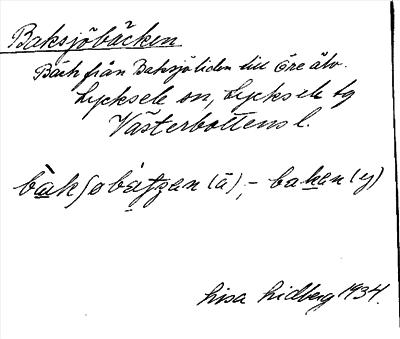 Baksjöbäcken
Bäck från Baksjöliden till Öre älv.
Lycksele sn, Lycksele tg
Västerbottens l.
(ä), - (y)
Lisa Lidberg 1934.